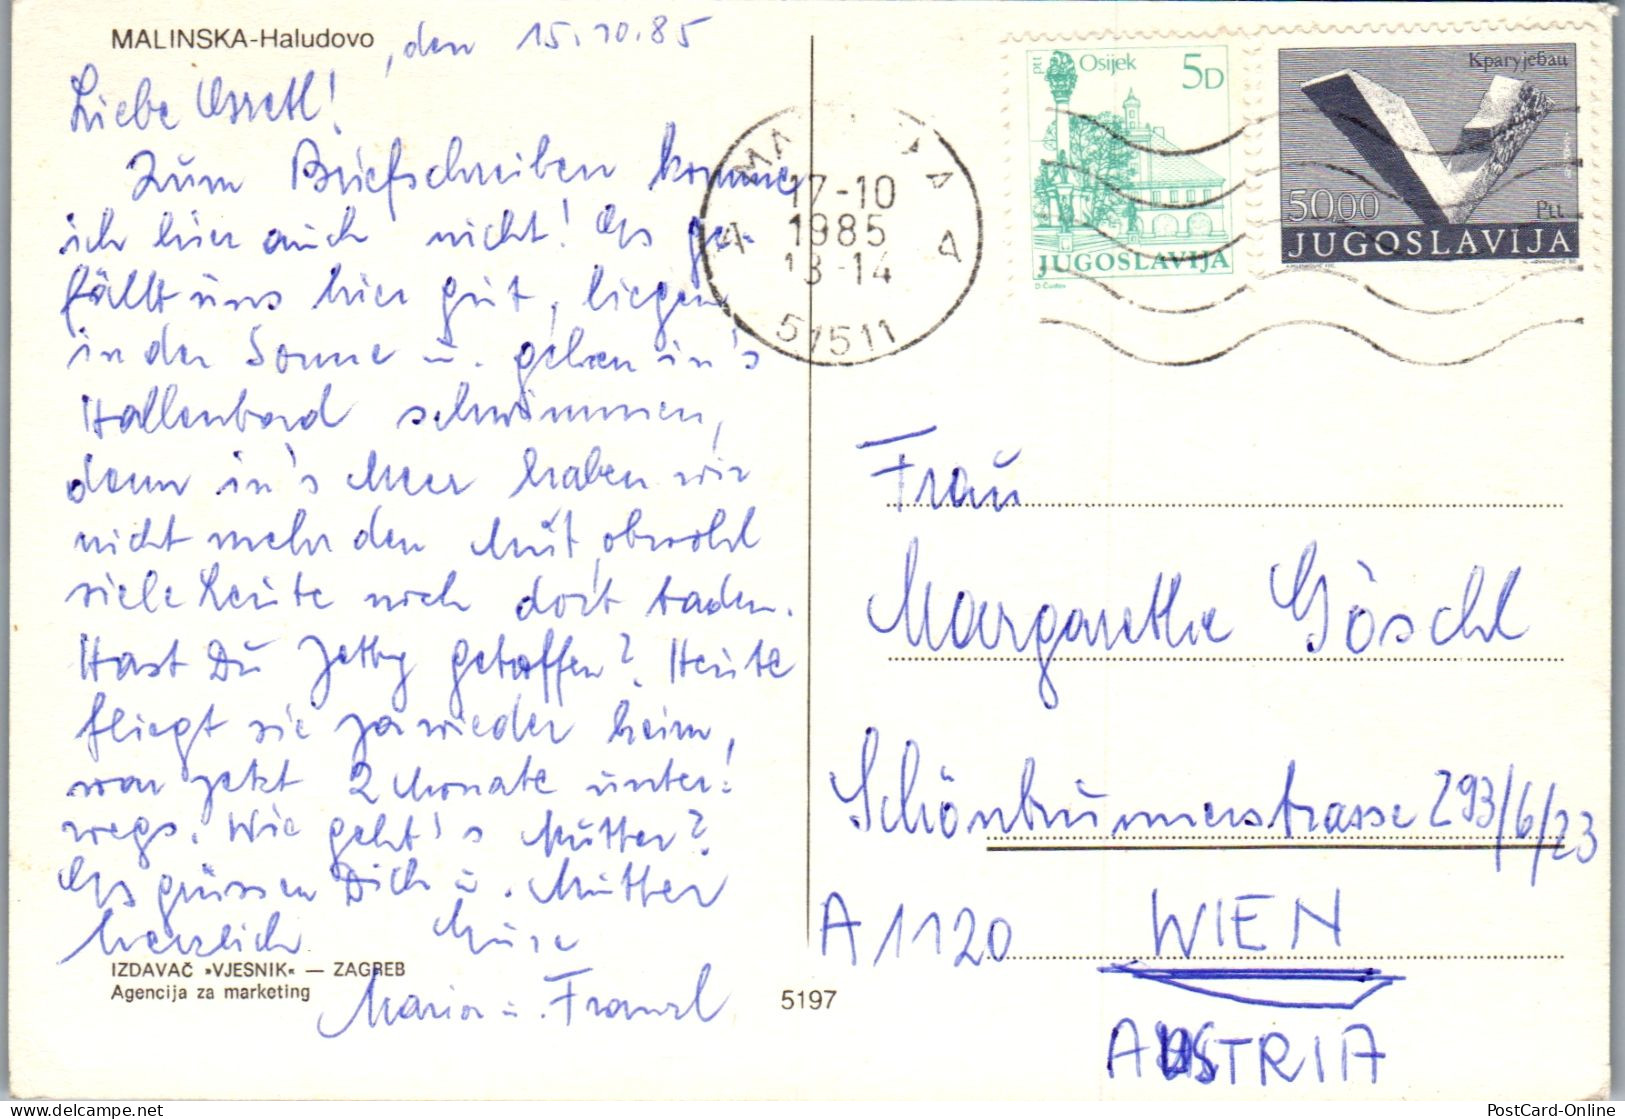 MALINSKA-Haludovo
, den 15.10.85
Liebe
Zum Briefschreiben komme
ich hier auch nicht! Es ge-
fällt uns hier gut, liegen
in der Sonne u. gehen in's
Hallenbad schwimmen,
denn in's Meer haben wir
nicht mehr den Mut, obwohl
viele Leute noch dort baden.
Hast Du getroffen? Heute
fliegt sie ja wieder heim,
war jetzt 2 Monate unter-
wegs. Wie geht's Mutter?
Es grüssen Dich u. Mutter
herzlich
Maria u. Franzl
IZDAVAČ »VJESNIK« — ZAGREB
Agencija za marketing
5197
17-10
1985
13-14
51511
ptt Osijek 5D
JUGOSLAVIJA
Крагујевац
50.00 Ptt
JUGOSLAVIJA
Frau
Margarethe Göschl
Schönbrunnerstrasse 293/6/23
A 1120 WIEN
AUSTRIA
PostCard-Online